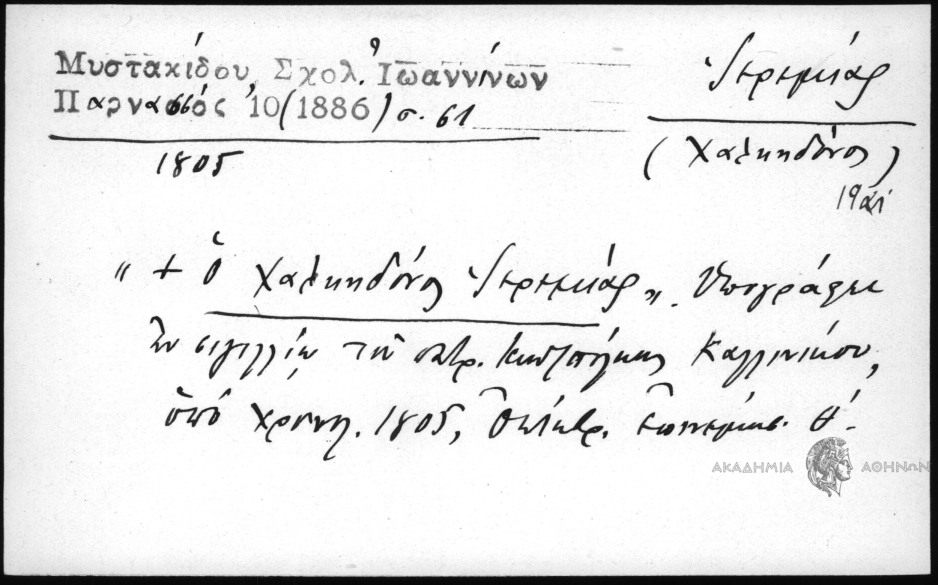 Μυστακίδου, Σχολ. Ἰωαννίνων
Παρνασσός 10 (1886) σ. 61
1805
Ἱερεμίας
(Χαλκηδόνος)
19 αἰ
"+ ὁ Χαλκηδόνος Ἱερεμίας". Ὑπογράφει
ἐν σιγιλλίῳ τοῦ πατρ. Κωνλπόλεως Καλλινίκου,
ὑπό χρονολ. 1805, Ὀκτωβρ. ἐπινεμήσ. θ΄.
ΑΚΑΔΗΜΙΑ ΑΘΗΝΩΝ